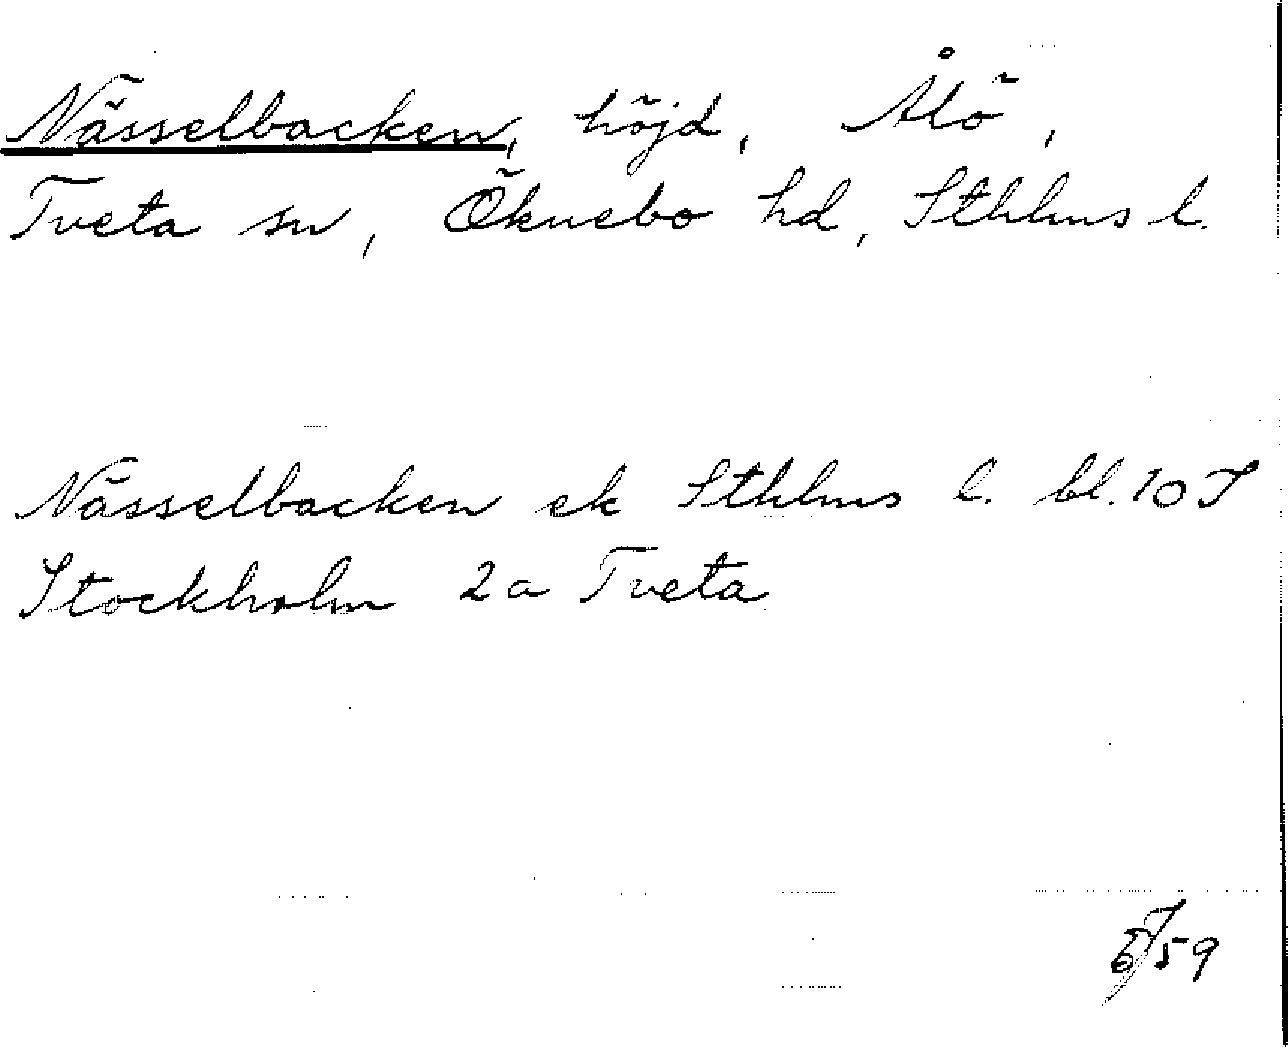 Nässelbacken, höjd, Ålö,
Tveta sn, Öknebo hd, Sthlms l.
Nässelbacken ek Sthlms l. bl. 10 I
Stockholm 2a Tveta